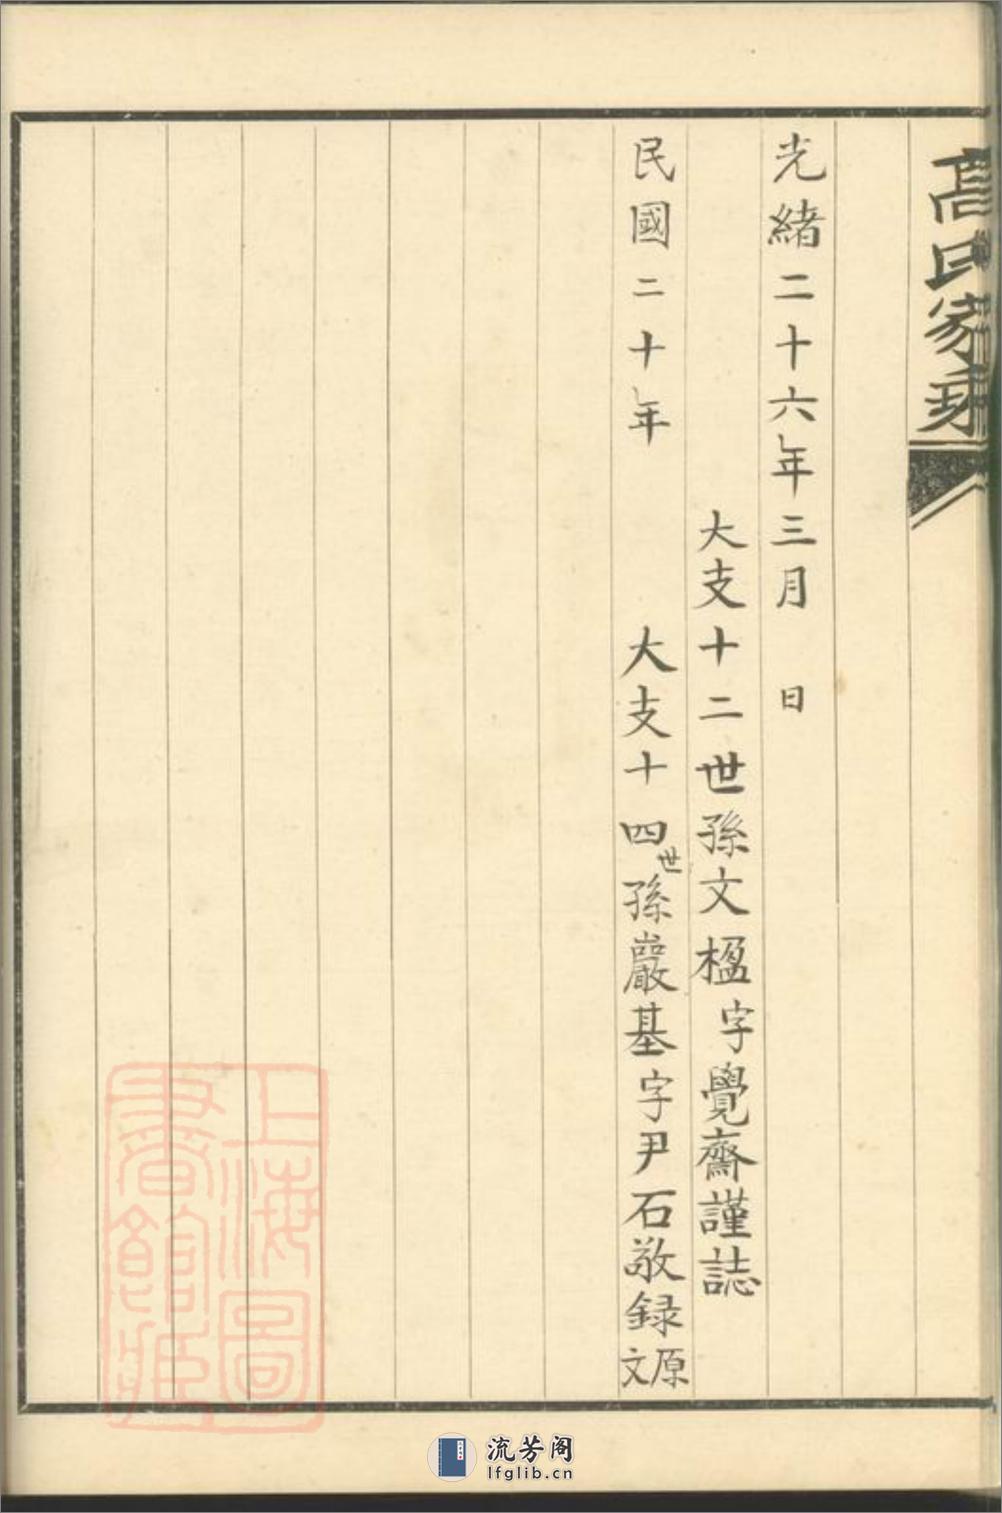 高氏家
光緒二十六年三月 日
大支十二世孫文楹字覺齋謹誌
民國二十年 大支十四世孫巖基字尹石敬録原文
上海圖
書館藏
流芳阁
lfglib.cn